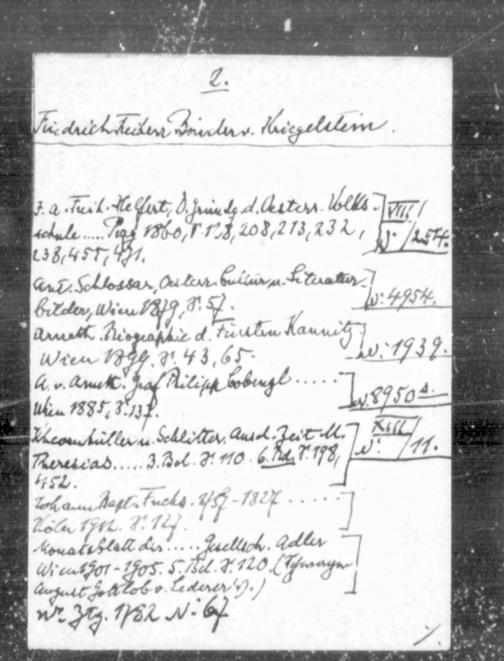 2.
Friedrich Freiherr v. Kriegelstein.
J. A. Freih. Helfert, D. Gründg d. Oesterr. Volks- VIII/
schule..... Prag 1860, S. 178, 208, 213, 232, N: /254.
238, 455, 471.
Ant. Schlossar, Oesterr. Cultur u. Literatur-
bilder, Wien 1879, S. 57 N: 4954.
Arneth. Biographie d. Fürsten Kaunitz
Wien 1899. S. 43, 65. N: 1939.
A. v. Arneth. Graf Philipp Cobenzl .....
Wien 1885, S. 137. N: 8950
Khevenhüller u. Schlitter. Aus d. Zeit M. XIII/
Theresias..... 3. Bd. S. 110. 6. Bd. S. 198, N: /11.
452.
Johann Bapt. Fuchs. 1757-1827 .....
Köln 1912. S. 127.
Monatsblatt der..... Gesellsch. Adler
Wien 1901-1905. 5. Bd. S. 120
August Gottlob v. Lederer
Wr. Ztg. 1782 No 67